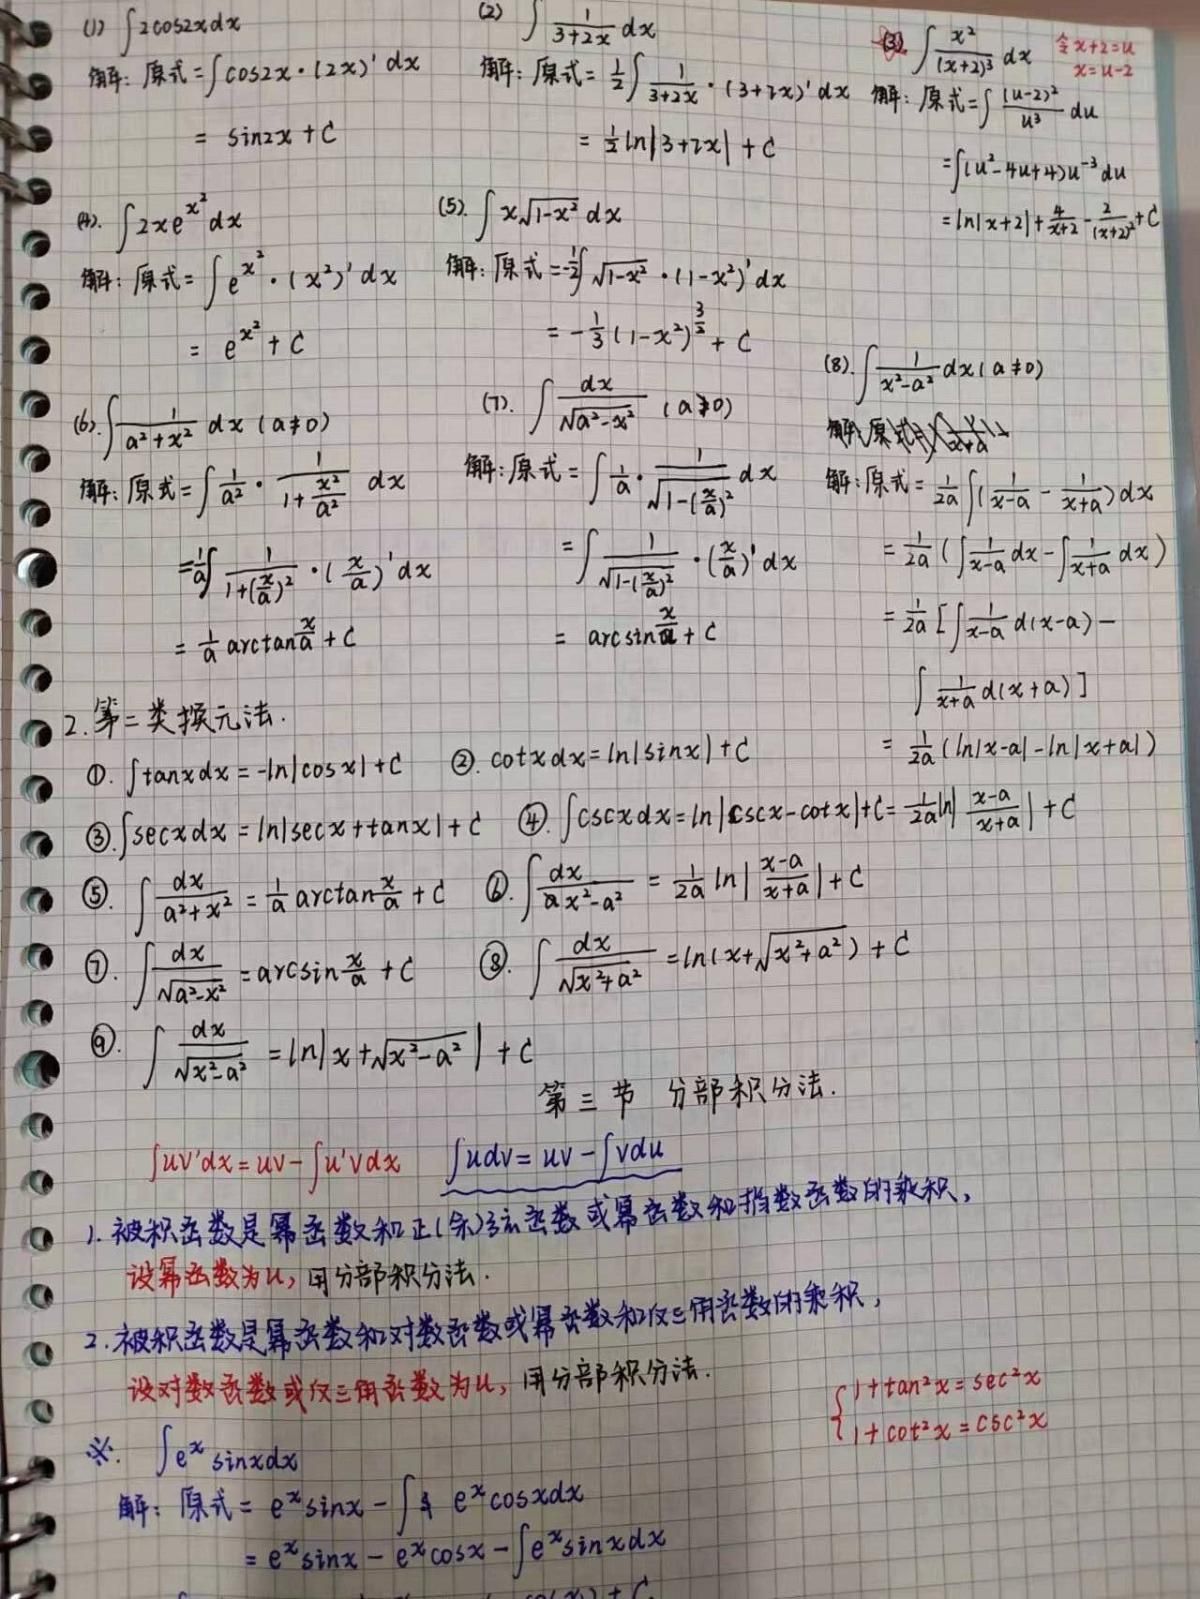 (1) ∫2cos2xdx
解: 原式=∫cos2x·(2x)'dx
= sin2x+C
(2) ∫1/(3+2x) dx
解: 原式= 1/2∫1/(3+2x)·(3+2x)'dx
= 1/2 ln|3+2x|+C
(3) ∫x²/(x+2)³ dx 令x+2=u
x=u-2
解: 原式=∫(u-2)²/u³ du
=∫(u²-4u+4)u⁻³du
=ln|x+2|+4/(x+2)-2/(x+2)²+C
(4). ∫2xe^x² dx
解: 原式=∫e^x²·(x²)'dx
= e^x²+C
(5). ∫x√(1-x²) dx
解: 原式=-1/2∫√(1-x²)·(1-x²)'dx
= -1/3(1-x²)^(3/2)+C
(6).∫1/(a²+x²) dx (a≠0)
解: 原式=∫1/a²·1/(1+x²/a²) dx
=1/a∫1/(1+(x/a)²)·(x/a)'dx
= 1/a arctan x/a+C
(7). ∫dx/√(a²-x²) (a≠0)
解: 原式=∫1/a·1/√(1-(x/a)²) dx
=∫1/√(1-(x/a)²)·(x/a)'dx
= arcsin x/a+C
(8).∫1/(x²-a²) dx (a≠0)
解: 原式= 1/2a∫(1/(x-a)-1/(x+a))dx
= 1/2a(∫1/(x-a) dx-∫1/(x+a) dx)
= 1/2a[∫1/(x-a) d(x-a)-
∫1/(x+a) d(x+a)]
= 1/2a(ln|x-a|-ln|x+a|)
= 1/2a ln|(x-a)/(x+a)|+C
2.第二类换元法.
①.∫tanxdx=-ln|cosx|+C ②. cotxdx=ln|sinx|+C
③.∫secxdx=ln|secx+tanx|+C ④.∫cscxdx=ln|cscx-cotx|+C
⑤. ∫dx/(a²+x²)=1/a arctan x/a+C ⑥.∫dx/(x²-a²)= 1/2a ln|(x-a)/(x+a)|+C
⑦. ∫dx/√(a²-x²)=arcsin x/a+C ⑧. ∫dx/√(x²+a²)=ln(x+√(x²+a²))+C
⑨. ∫dx/√(x²-a²)=ln|x+√(x²-a²)|+C
第三节 分部积分法.
∫uv'dx=uv-∫u'vdx ∫udv=uv-∫vdu
1.被积函数是幂函数和正(余)弦函数或幂函数和指数函数的乘积,
设幂函数为u,用分部积分法.
2.被积函数是幂函数和对数函数或幂函数和反三角函数的乘积,
设对数函数或反三角函数为u,用分部积分法.
{1+tan²x=sec²x
1+cot²x=csc²x
※. ∫e^x sinxdx
解: 原式= e^x sinx-∫e^x cosxdx
= e^x sinx-e^x cosx-∫e^x sinxdx